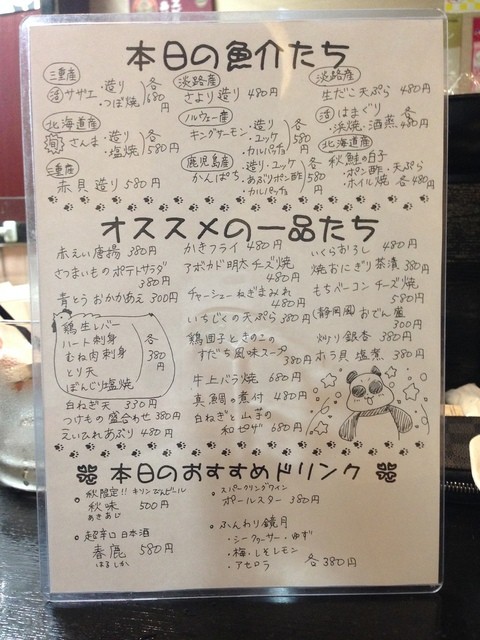 本日の魚介たち
三重産
活 サザエ ・造り ・つぼ焼 各680円
北海道産
旬 さんま ・造り ・塩焼 各580円
三重産
赤貝 造り 580円
淡路産
さより 造り 480円
ノルウェー産
キングサーモン ・造り ・ユッケ ・カルパッチョ 各580円
鹿児島産
かんぱち ・造り・ユッケ ・あぶりポン酢 ・カルパッチョ 各580円
淡路産
生だこ 天ぷら 480円
活 はまぐり
・浜焼・酒蒸 各480円
北海道産
秋鮭の白子
・ポン酢 ・天ぷら
・ホイル焼 各480円
オススメの一品たち
赤えい唐揚 380円
さつまいものポテトサラダ
380円
青とうおかかあえ 300円
鶏生レバー
ハート刺身
むね肉刺身
とり天
ぼんじり塩焼
各380円
白ねぎ天 330円
つけもの盛合わせ 380円
えいひれあぶり 480円
かきフライ 480円
アボカド明太チーズ焼
480円
チャーシューねぎまみれ
480円
いちじくの天ぷら 380円
鶏団子ときのこの
すだち風味スープ
380円
牛上バラ焼 680円
真鯛の煮付 480円
白ねぎと山芋の
和ピザ 680円
いくらおろし 480円
焼おにぎり茶漬 380円
もちベーコンチーズ焼
580円
(静岡風)おでん盛
300円
炒り銀杏 380円
ホラ貝 塩煮 380円
本日のおすすめドリンク
秋限定!! キリンびんビール
秋味 500円
あきあじ
超辛口 日本酒
春鹿 580円
はるしか
スパークリングワイン
ポールスター 380円
ふんわり鏡月
・シークヮーサー ・ゆず
・梅 ・しそレモン
・アセロラ 各380円